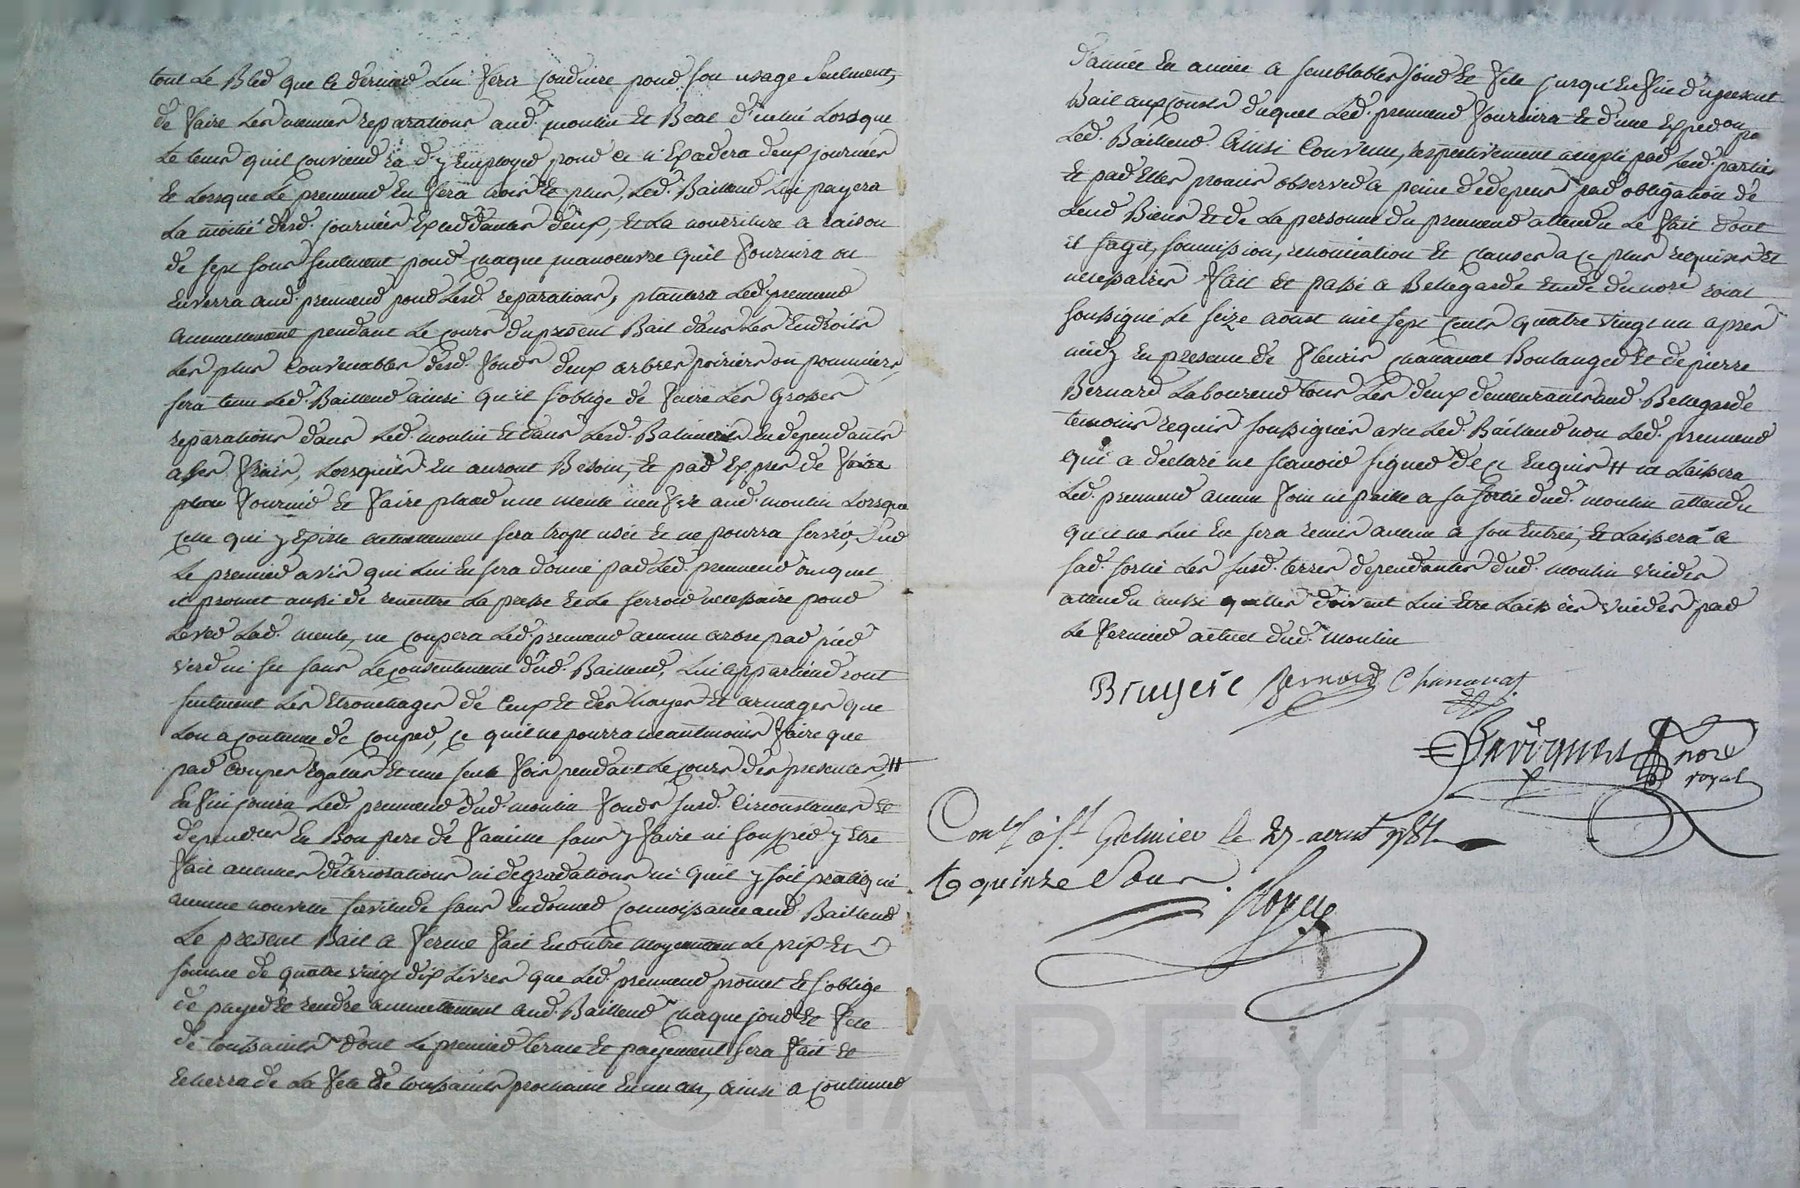 tout Le Bled que ce dernier Lui fera conduire pour son usage seulement,
de faire Les menues reparations aud. moulin et Beal d'icelui Lorsque
Le tems qu'il conviendra d'y Employer pour ce n'Exedera deux journées
et Lorsque Le preneur En fera trois et plus, Led. Bailleur Lui payera
La moitié desd. journées Excedantes deux, et La nourriture a raison
de sept sous seulement pour chaque manoeuvre qu'il fournira ou
Enverra aud. preneur pour Lesd. reparations, plantera Led. preneur
annuellement pendant Le cours du present Bail dans Les Endroits
Les plus convenables desd. fonds deux arbres poiriers ou pommiers,
sera tenu Led. Bailleur ainsi qu'il s'oblige de faire Les grosses
reparations dans Led. moulin et dans Lesd. Batiments En dependants
a ses frais, Lorsqu'ils En auront Besoin, et par Exprès de faire
fournir et faire placer une meule neufve aud. moulin Lorsque
celle qui y Existe actuellement sera trop usée et ne pourra servir, sur
Le premier avis qui Lui En sera donné par Led. preneur auquel
il promet aussi de remettre La presse et Le ferroir necessaire pour
Lever Lad. meule, ne coupera Led. preneur aucun arbre par pied
verd ni sec sans Le consentement dud. Bailleur, Lui appartiendront
seulement Les Etronchages de ceux et des hayes et armages que
L'on a coutume de couper, ce qu'il ne pourra neantmoins faire que
par coupes Egales et une seule fois pendant Le cours des presentes, #
Enfin jouira Led. preneur dud. moulin fonds susd. circonstances et
dependces En Bon pere de famille sans y faire ni souffrir y Etre
fait aucunes deteriorations ni degradations ni qu'il y soit pratiqué
aucune nouvelle servitude sans En donner connoissance aud. Bailleur
Le present Bail a ferme fait En outre moyennant Le prix et
somme de quatre vingt dix Livres que Led. preneur promet et s'oblige
de payer et rendre annuellement aud. Bailleur chaque jour et fete
de toussaints dont Le premier terme et payement sera fait et
Echerra de La fete de toussaints prochaine En un an, ainsi a continuer
d'année En année a semblables jour et fete jusqu'En fin du present
Bail aux couts duquel Led. preneur fournira et d'une Expedon pr
Led. Bailleur. Ainsi Convenu, respectivement accepté par Lesd. parties
et par Elles promis observer a peine de depens par obligation de
Leurs Biens et de La personne du preneur attendu Le fait dont
il s'agit, soumission, renonciation et clauses a ce plus requises et
necessaires fait et passé a Bellegarde Etude du nore roial
soussigné Le seize aoust mil sept cents quatre vingt un après
midy En presence de fleuris chanavat Boulanger et de pierre
Bernard Laboureur tous Les deux demeurants aud. Bellegarde
temoins requis soussignés avec Led. Bailleur non Led. preneur
qui a declaré ne scavoir signer de ce Enquis # ne Laissera
Led. preneur aucun foin ni paille a sa sortie dud. moulin attendu
qu'il ne Lui En sera remis aucun a son Entrée, et Laissera a
sad. sortie Les susd. terres dependantes dud. moulin vuides
attendu aussi qu'elles doivent Lui Etre Laissées vuides par
Le fermier actuel dud. moulin
Bruyere Bernard Chanavat
nore
royal
Conlé à St. Galmier le 27 aout 1781
quinze sous.